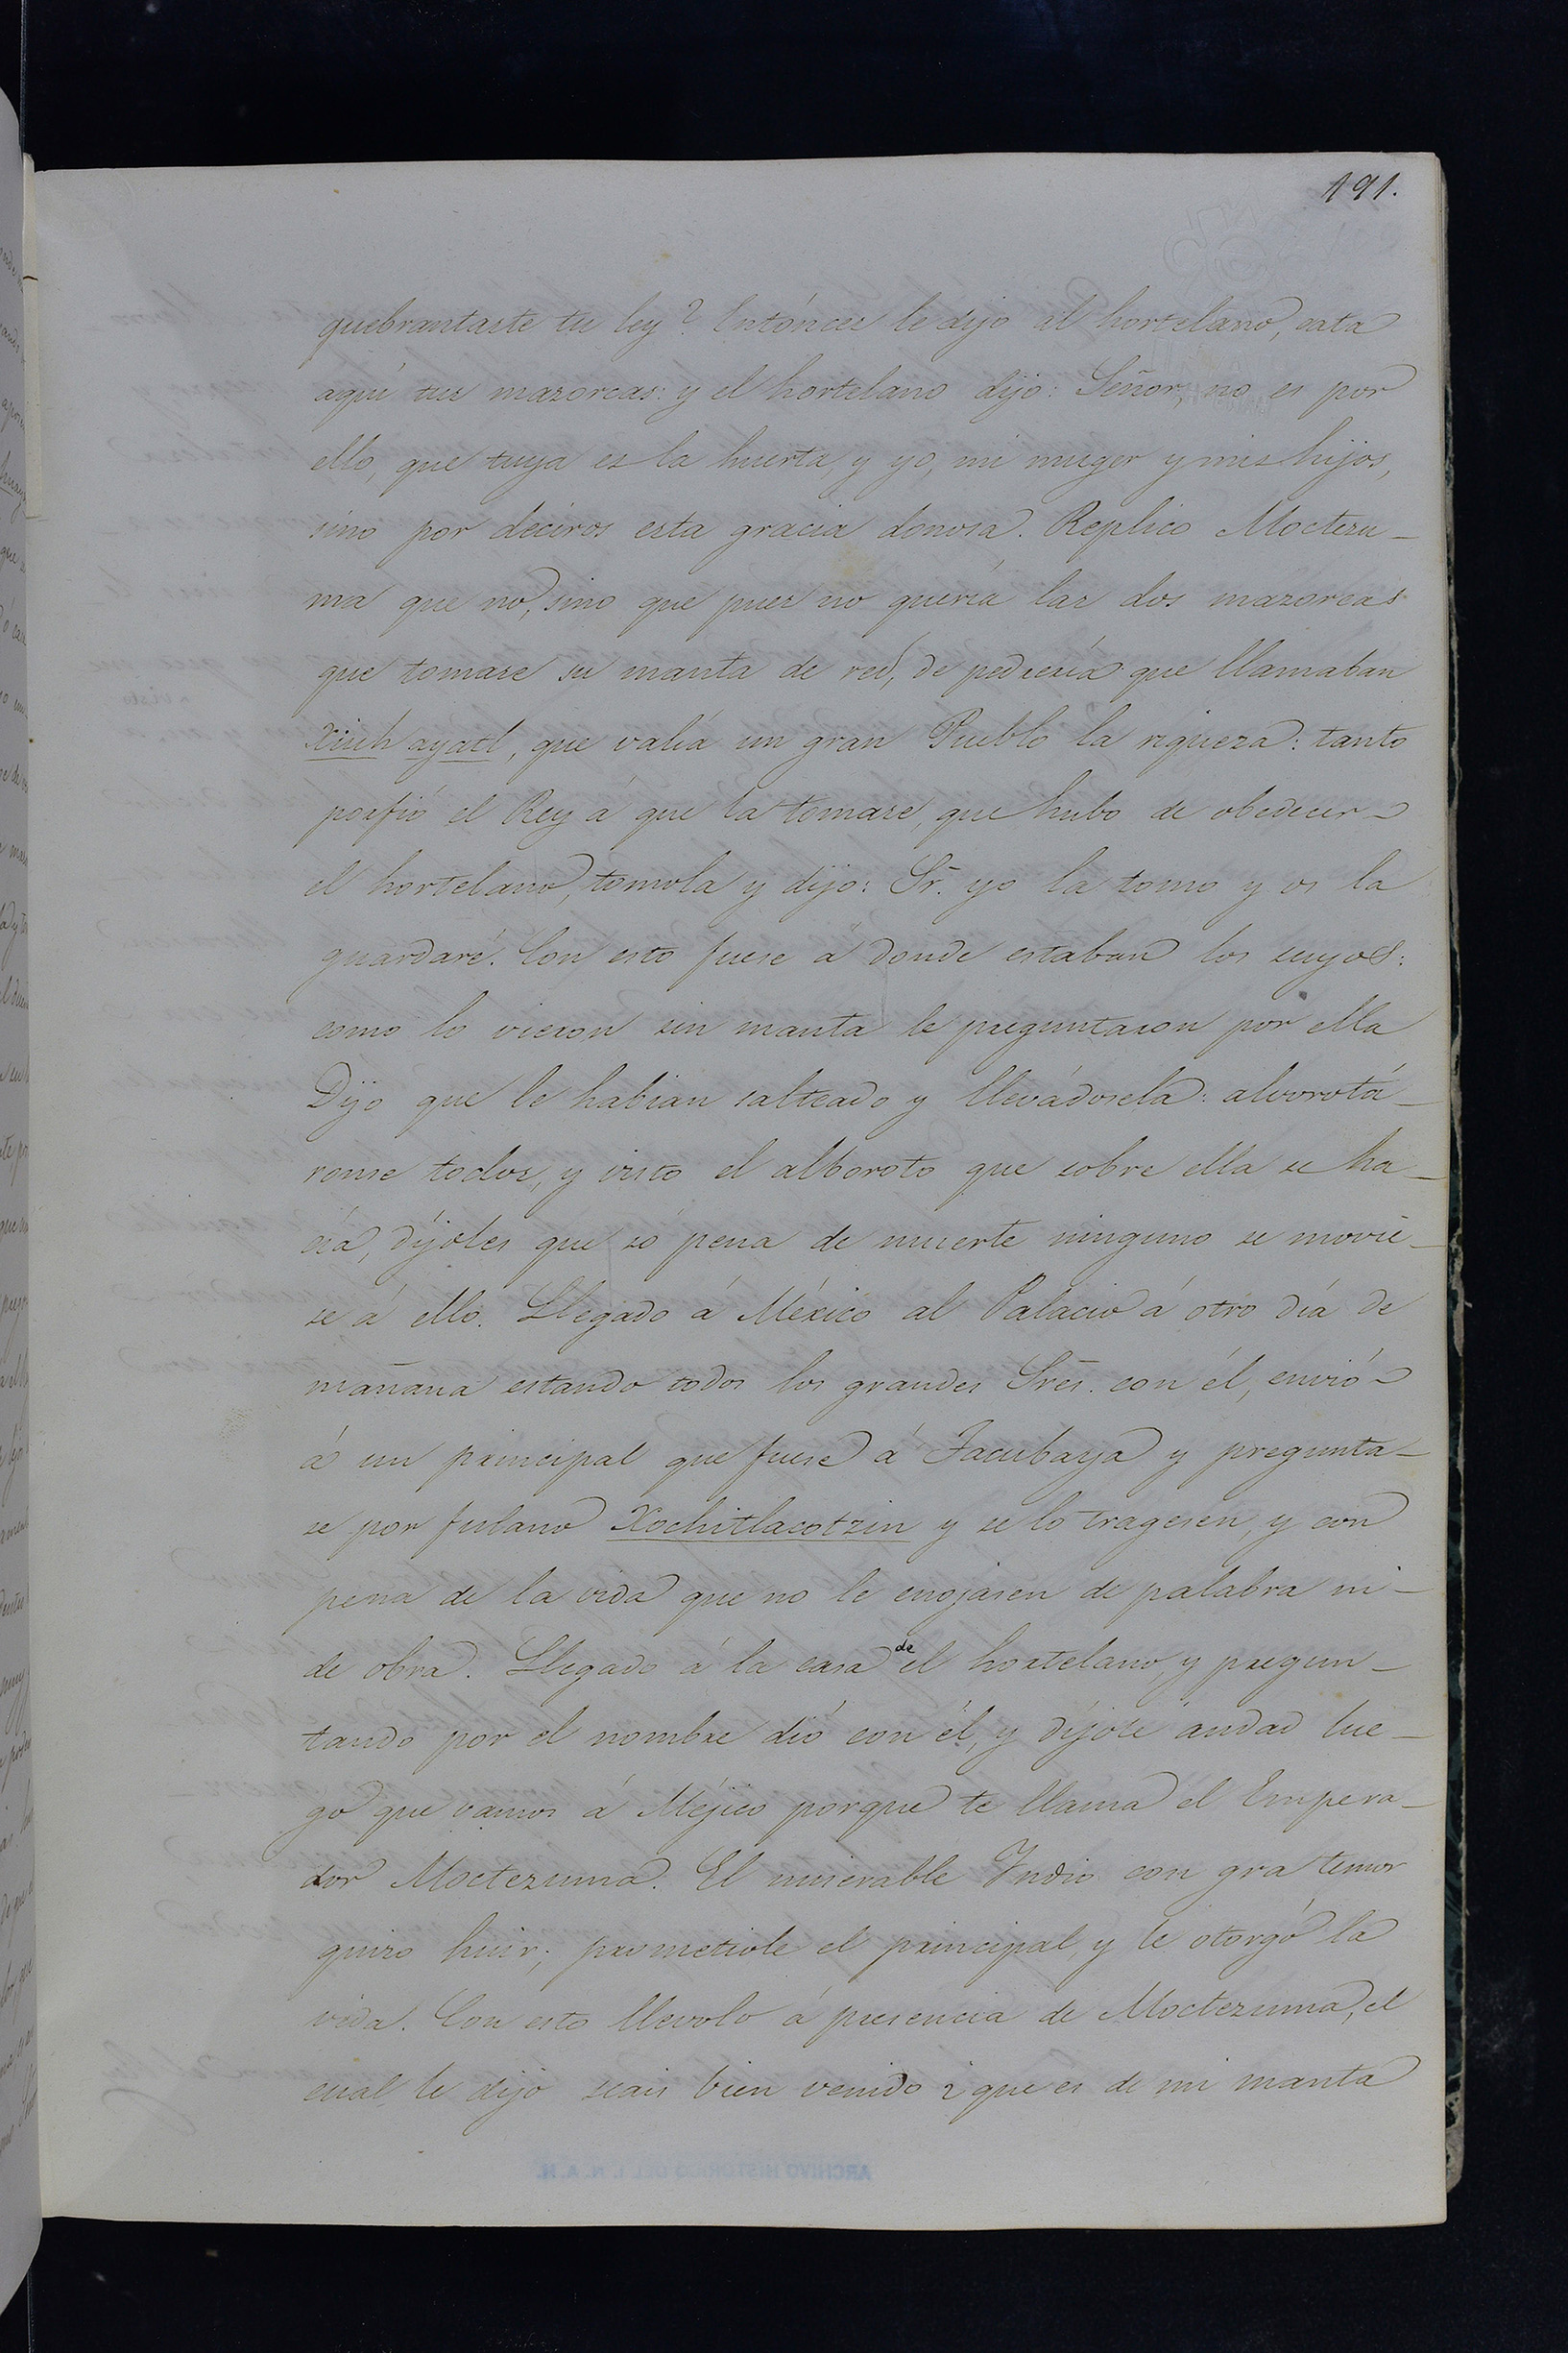 191.
quebrantaste tu ley? Entónces le dijo al hortelano, cata
aquí tus mazorcas: y el hortelano dijo: Señor, no es por
ello, que tuya es la huerta, y yo, mi muger y mis hijos,
sino por deciros esta gracia donosa. Replico Moctezu-
ma que no, sino que pues no quería las dos mazorcas
que tomase su manta de red, de pedrería que llamaban
Xiuh ayatl, que valía un gran Pueblo la riqueza: tanto
porfió el Rey á que la tomase, que hubo de obedecer-
el hortelano, tomola y dijo: Sr. yo la tomo y os la
guardaré. Con esto fuese á donde estaban los suyos:
como lo vieron sin manta le preguntaron por ella
Dijo que le habian salteado y llevádosela: alvorotá-
ronse todos, y visto el alboroto que sobre ella se ha-
cía, díjoles que só pena de muerte ninguno se movie-
se á ello. Llegado á México al Palacio á otro día de
mañana estando todos los grandes Sres. con él, envió-
á un principal que fuese á Tacubaya y pregunta-
se por fulano Xochitlacotzin y se lo tragesen, y con
pena de la vida que no le enojasen de palabra ni-
de obra. Llegado á la casa de el hortelano, y pregun-
tando por el nombre dió con él, y díjole andad lue-
go que vamos á Méjico porque te llama el Empera-
dor Moctezuma. El miserable Indio con gra temor
quizo huir; prometiole el principal, y le otorgó la
vida. Con esto llevolo á presencia de Moctezuma, el
cual le dijo seais bien venido ¿que es de mi manta
ARCHIVO HISTORICO DEL I. N. A. H.